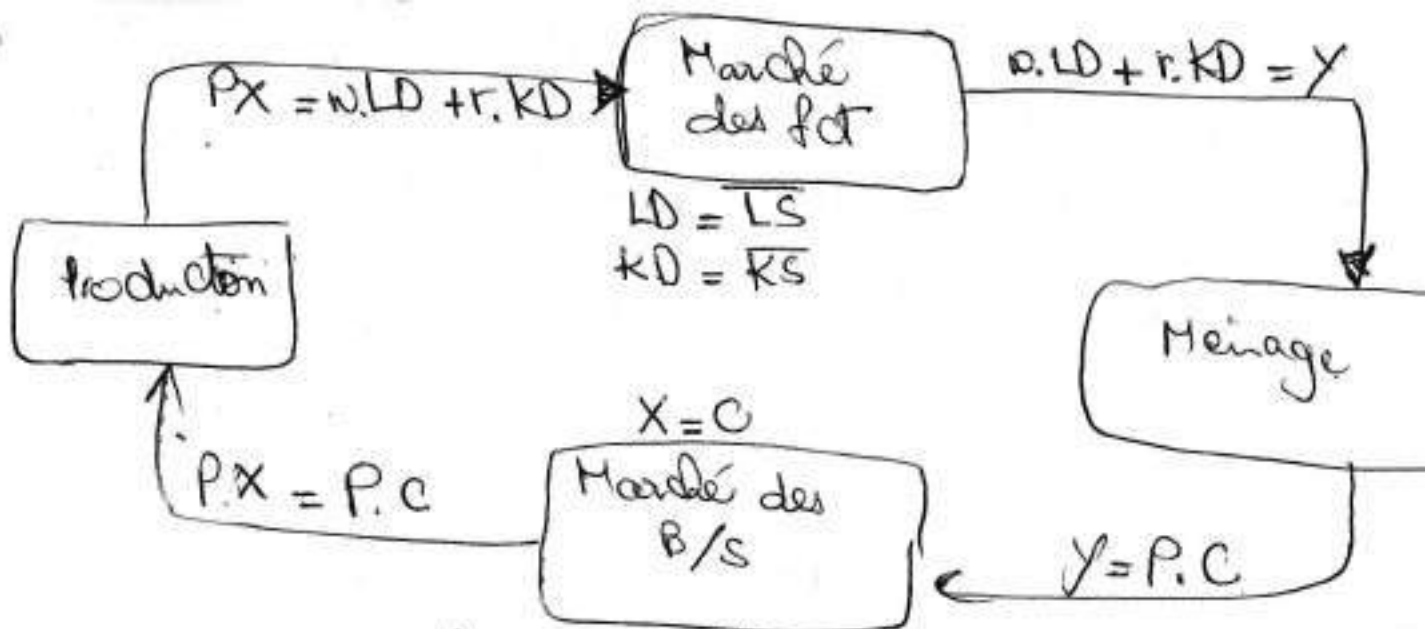 PX = w.LD + r.KD
Marché
des fct
w.LD + r.KD = Y
LD = L̅S̅
KD = K̅S̅
Production
Ménage
X = C
P.X = P.C
Marché des
B/S
Y = P.C